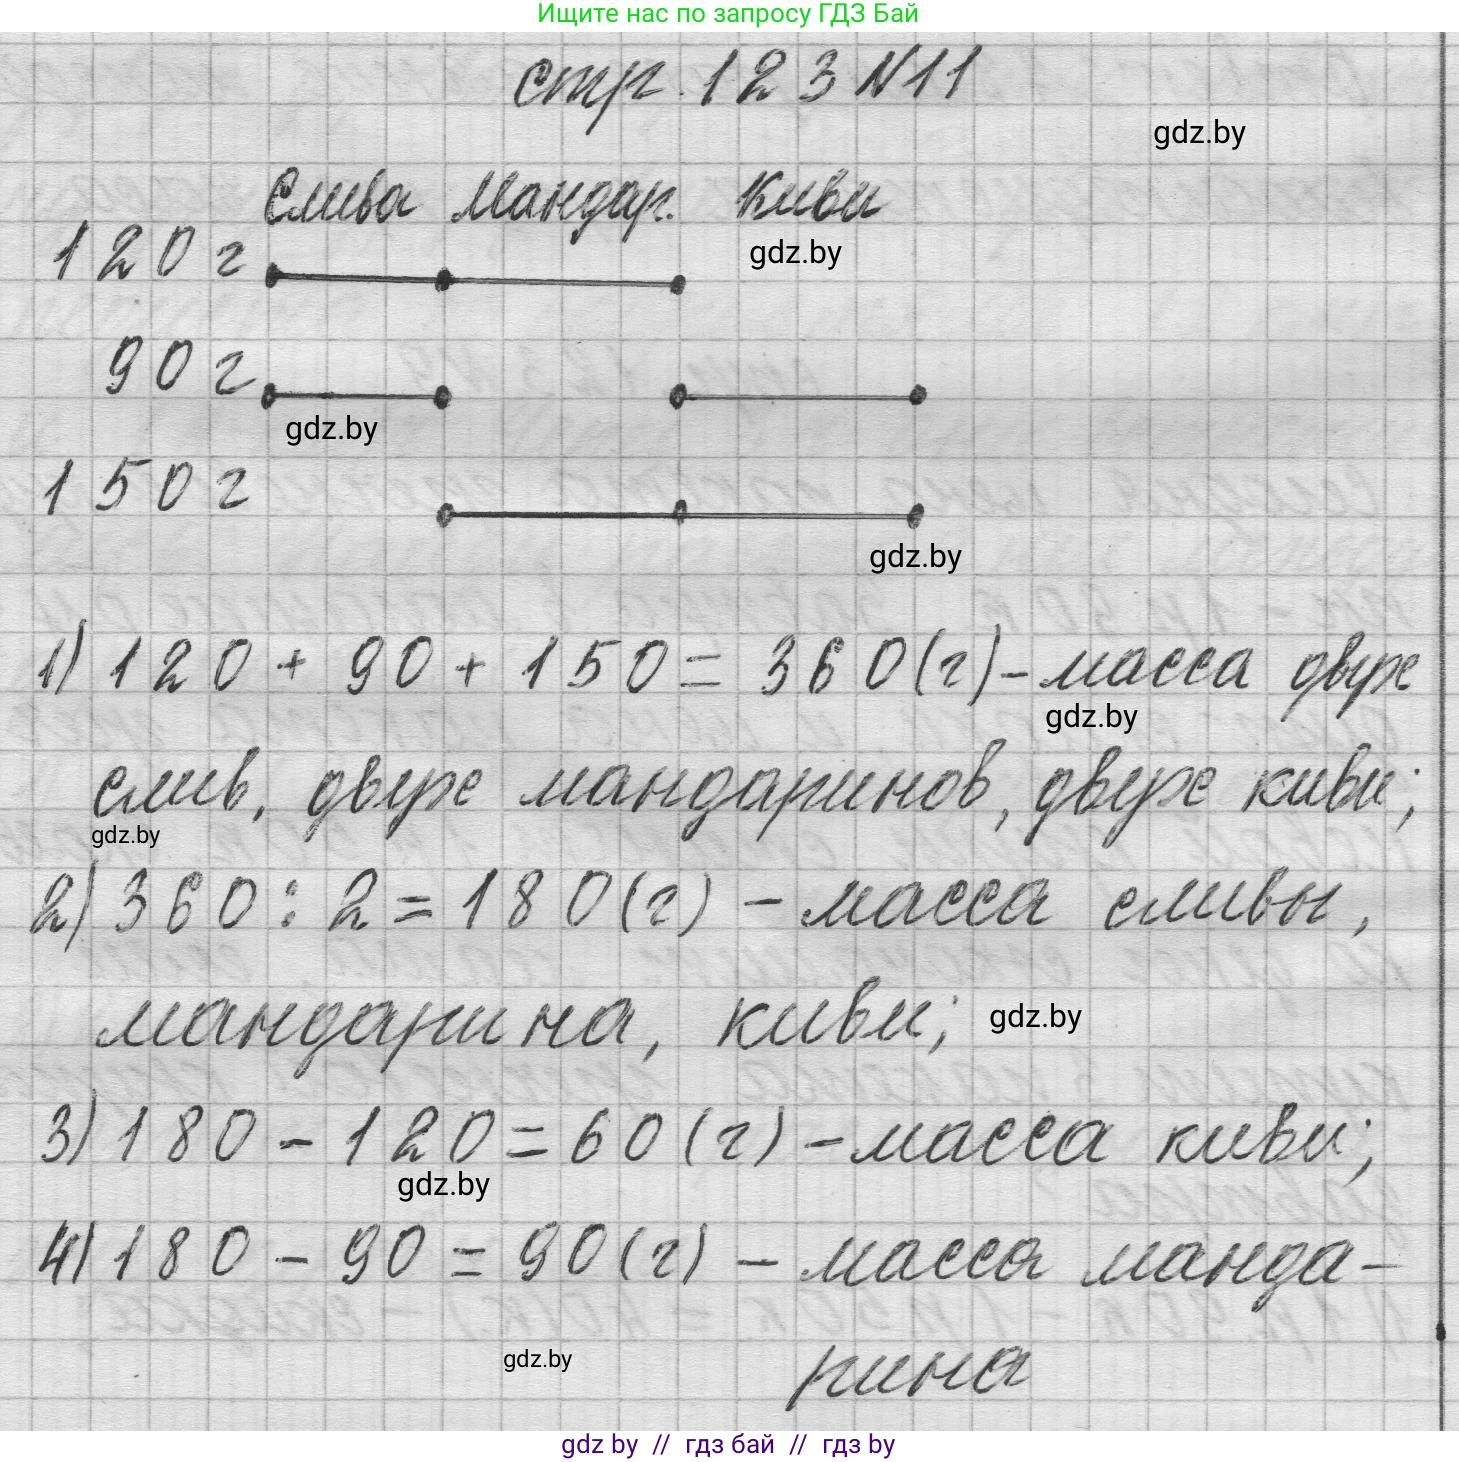 Ищите нас по запросу ГДЗ Бай
стр. 123 №11
gdz.by
Слива Мандар. Киви
120 г
gdz.by
90 г
gdz.by
150 г
gdz.by
1) 120 + 90 + 150 = 360 (г) – масса двух
gdz.by
слив, двух мандаринов, двух киви;
gdz.by
2) 360 : 2 = 180 (г) – масса сливы,
мандарина, киви;
gdz.by
3) 180 – 120 = 60 (г) – масса киви;
gdz.by
4) 180 – 90 = 90 (г) – масса манда-
gdz.by
рина
gdz by // гдз бай // гдз by